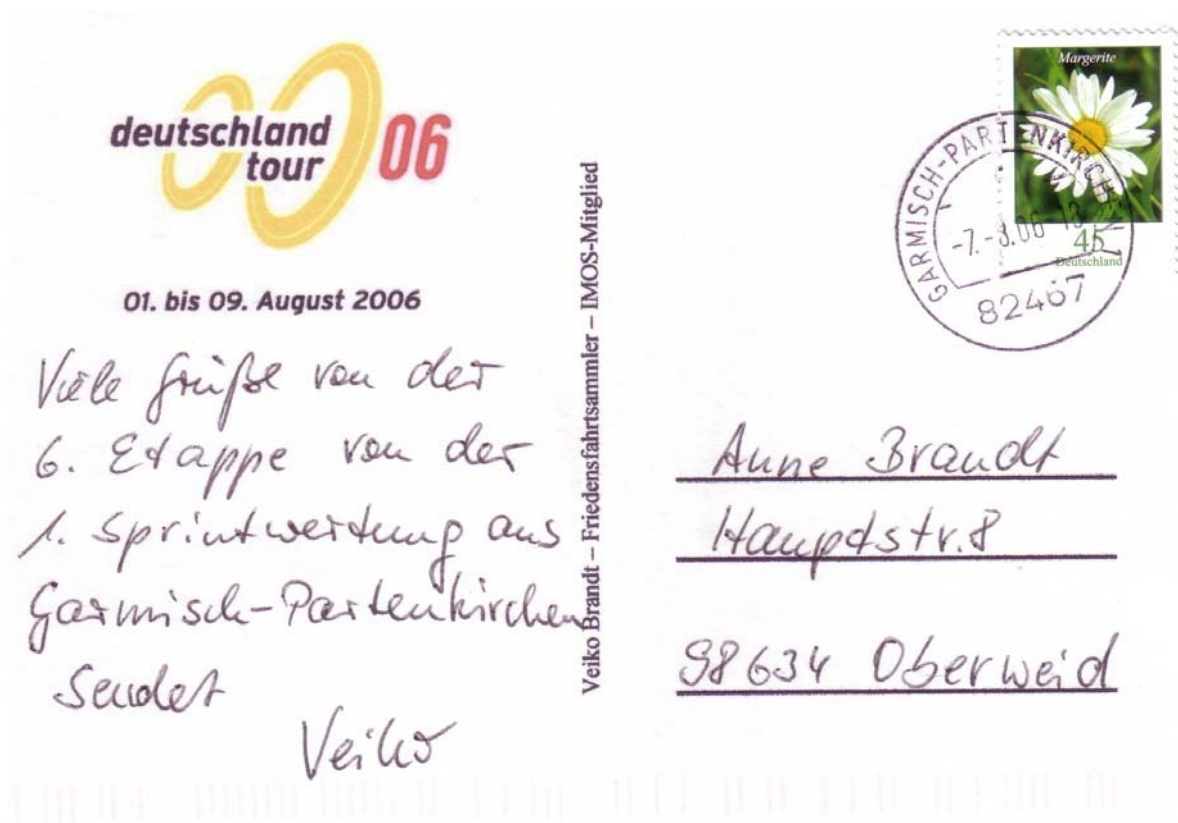 deutschland
tour 06
01. bis 09. August 2006
Viele Grüße von der
6. Etappe von der
1. Sprintwertung aus
Garmisch-Partenkirchen
sendet
Veiko
Veiko Brandt – Friedensfahrtsammler – IMOS-Mitglied
Margerite
45
Deutschland
GARMISCH-PARTENKIRCHEN 1
-7.-8.06-18
82467
Anne Brandt
Hauptstr. 8
98634 Oberweid